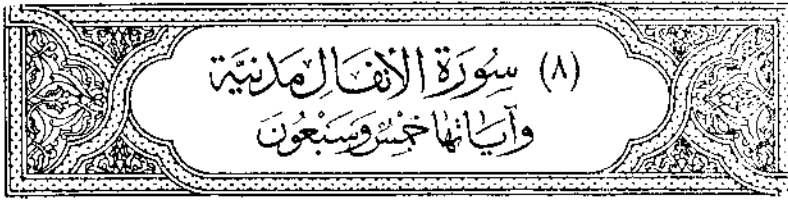 (٨) سُورَة الأنفَال مَدنيَّة
وَآيَاتها خَمْسٌ وَسَبْعُونَ